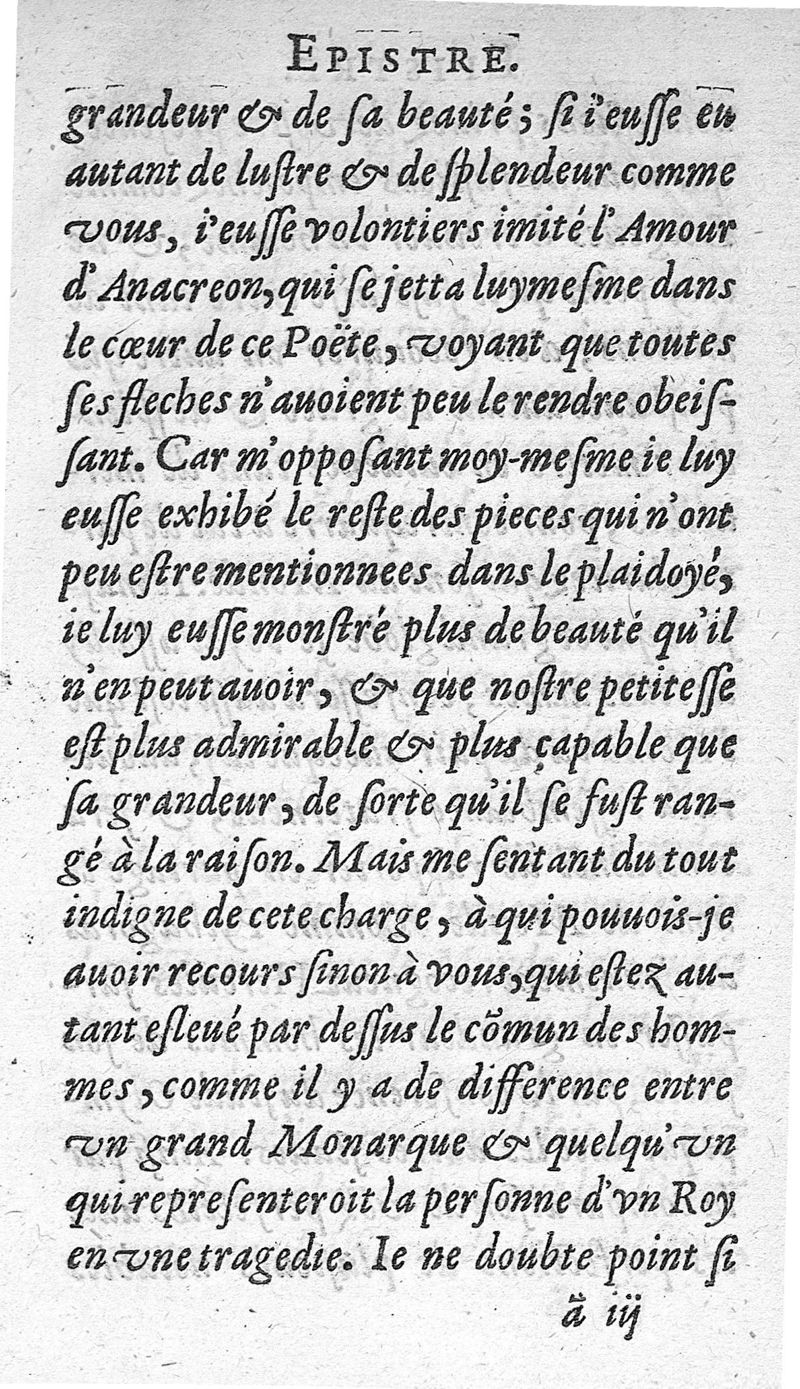 EPISTRE.
grandeur & de ſa beauté; ſi i'euſſe eu
autant de luſtre & de ſplendeur comme
vous, i'euſſe volontiers imité l'Amour
d'Anacreon, qui ſe jetta luymeſme dans
le cœur de ce Poëte, voyant que toutes
ſes fleches n'auoient peu le rendre obeiſ-
ſant. Car m'oppoſant moy-meſme ie luy
euſſe exhibé le reſte des pieces qui n'ont
peu eſtre mentionnees dans le plaidoyé,
ie luy euſſe monſtré plus de beauté qu'il
n'en peut auoir, & que noſtre petiteſſe
eſt plus admirable & plus çapable que
ſa grandeur, de ſorte qu'il ſe fuſt ran-
gé à la raiſon. Mais me ſentant du tout
indigne de cete charge, à qui pouuois-je
auoir recours ſinon à vous, qui eſtez au-
tant eſleué par deſſus le cõmun des hom-
mes, comme il y a de difference entre
vn grand Monarque & quelqu'vn
qui repreſenteroit la perſonne d'vn Roy
en vne tragedie. Ie ne doubte point ſi
ã iij